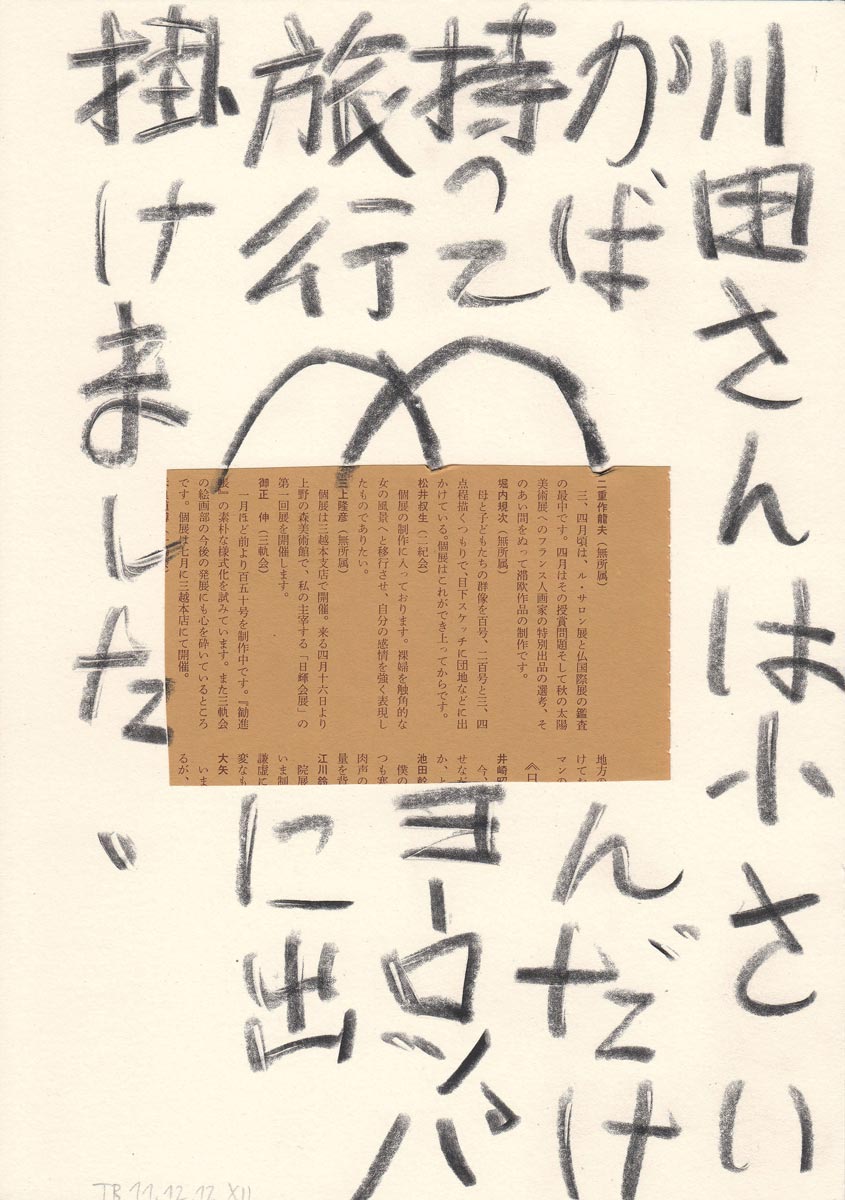 川田さんは小さい
かばんだけ
持ってヨーロッパ
旅行に出
掛けました。
二重作龍夫(無所属)
三、四月頃は、ル・サロン展と仏国際展の鑑査
の最中です。四月はその授賞問題そして秋の太陽
美術展へのフランス人画家の特別出品の選考、そ
のあい間をぬって滞欧作品の制作です。
堀内規次(無所属)
母と子どもたちの群像を百号、二百号と三、四
点程描くつもりで、目下スケッチに団地などに出
かけている。個展はこれができ上ってからです。
松井叔生(二紀会)
個展の制作に入っております。裸婦を触角的な
女の風景へと移行させ、自分の感情を強く表現し
たものでありたい。
三上隆彦(無所属)
個展は三越本支店で開催。来る四月十六日より
上野の森美術館で、私の主宰する「日輝会展」の
第一回展を開催します。
御正 伸(三軌会)
一月ほど前より百五十号を制作中です。『勧進
帳』の素朴な様式化を試みています。また三軌会
の絵画部の今後の発展にも心を砕いているところ
です。個展は七月に三越本店にて開催。
地方の
けてお
マンの
《日
井崎昭
今、
せなが
か、と
池田幹
僕の
つも寒
肉声の
量を背
江川鈴
院展
いま制
謙虚に
変なも
大矢
いま
るが、
TB 11.12.12 XII